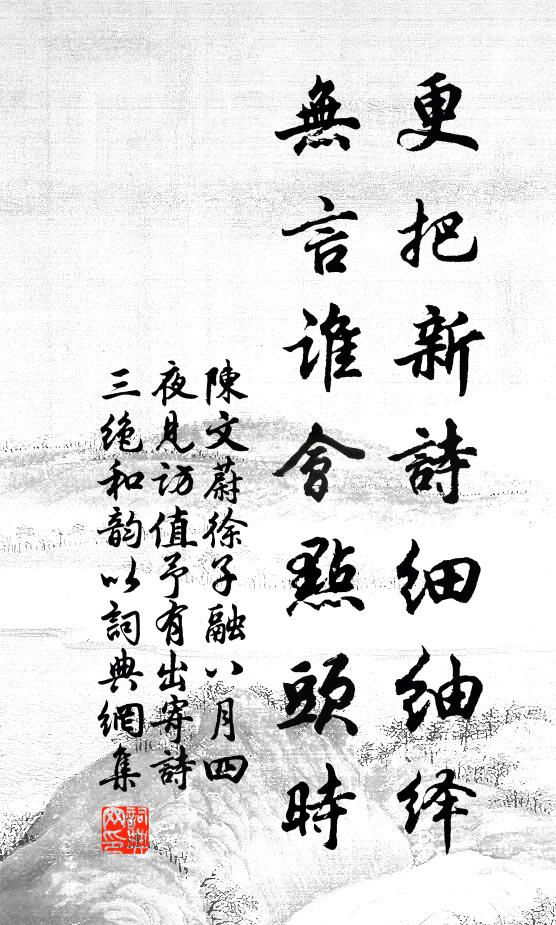 更把新詩細紬绎
無言誰會點頭時
陳文蔚徐子融八月四
夜見訪值予有出寄詩
三绝和韵以詞典網集
詞典网印